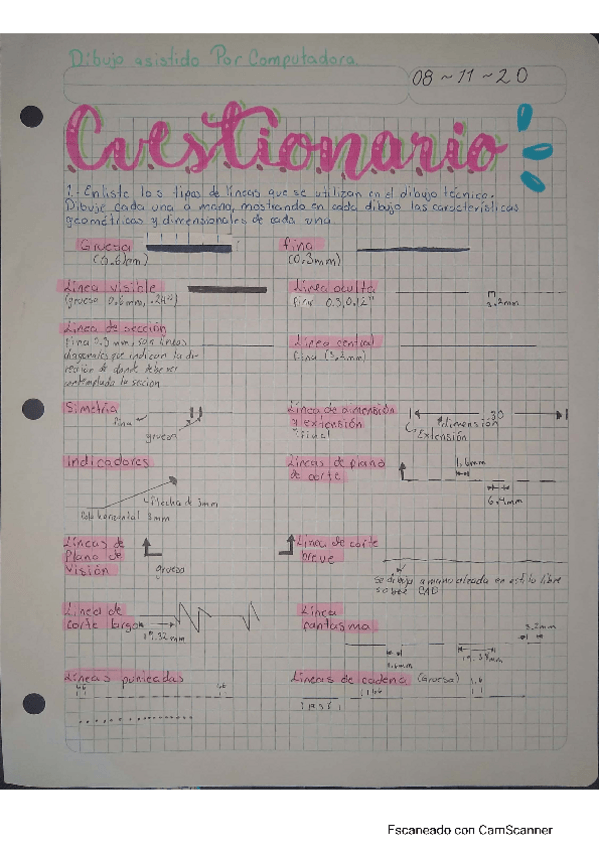 Dibujo asistido Por Computadora
08~11~20
Cuestionario
1.- Enliste los tipos de líneas que se utilizan en el dibujo técnico.
Dibuje cada una a mano, mostrando en cada dibujo las características
geométricas y dimensionales de cada una.
Gruesa
(0.6mm)
fina
(0.3mm)
Línea visible
(grueso 0.6mm, .24")
Línea oculta
fina 0.3, 0.12"
3.2mm
Línea de sección
fina 0.3 mm, son líneas
diagonales que indican la di-
rección de donde debe ser
contemplada la sección
Línea central
fina
Simetría
fina
gruesa
Línea de dimensión
y extensión
30
dimensión
Extensión
Indicadores
Flecha de 3mm
Palo horizontal 3mm
Líneas de plano
de corte
1.6mm
6.4mm
Líneas de
Plano de
Visión
grueso
Línea de corte
breve
Se dibuja a mano alzada en estilo libre
CAD
Línea de
corte largo
19.32mm
Línea
fantasma
3.2mm
1.6mm
Líneas punteadas
Líneas de cadena (gruesa)
Escaneado con CamScanner